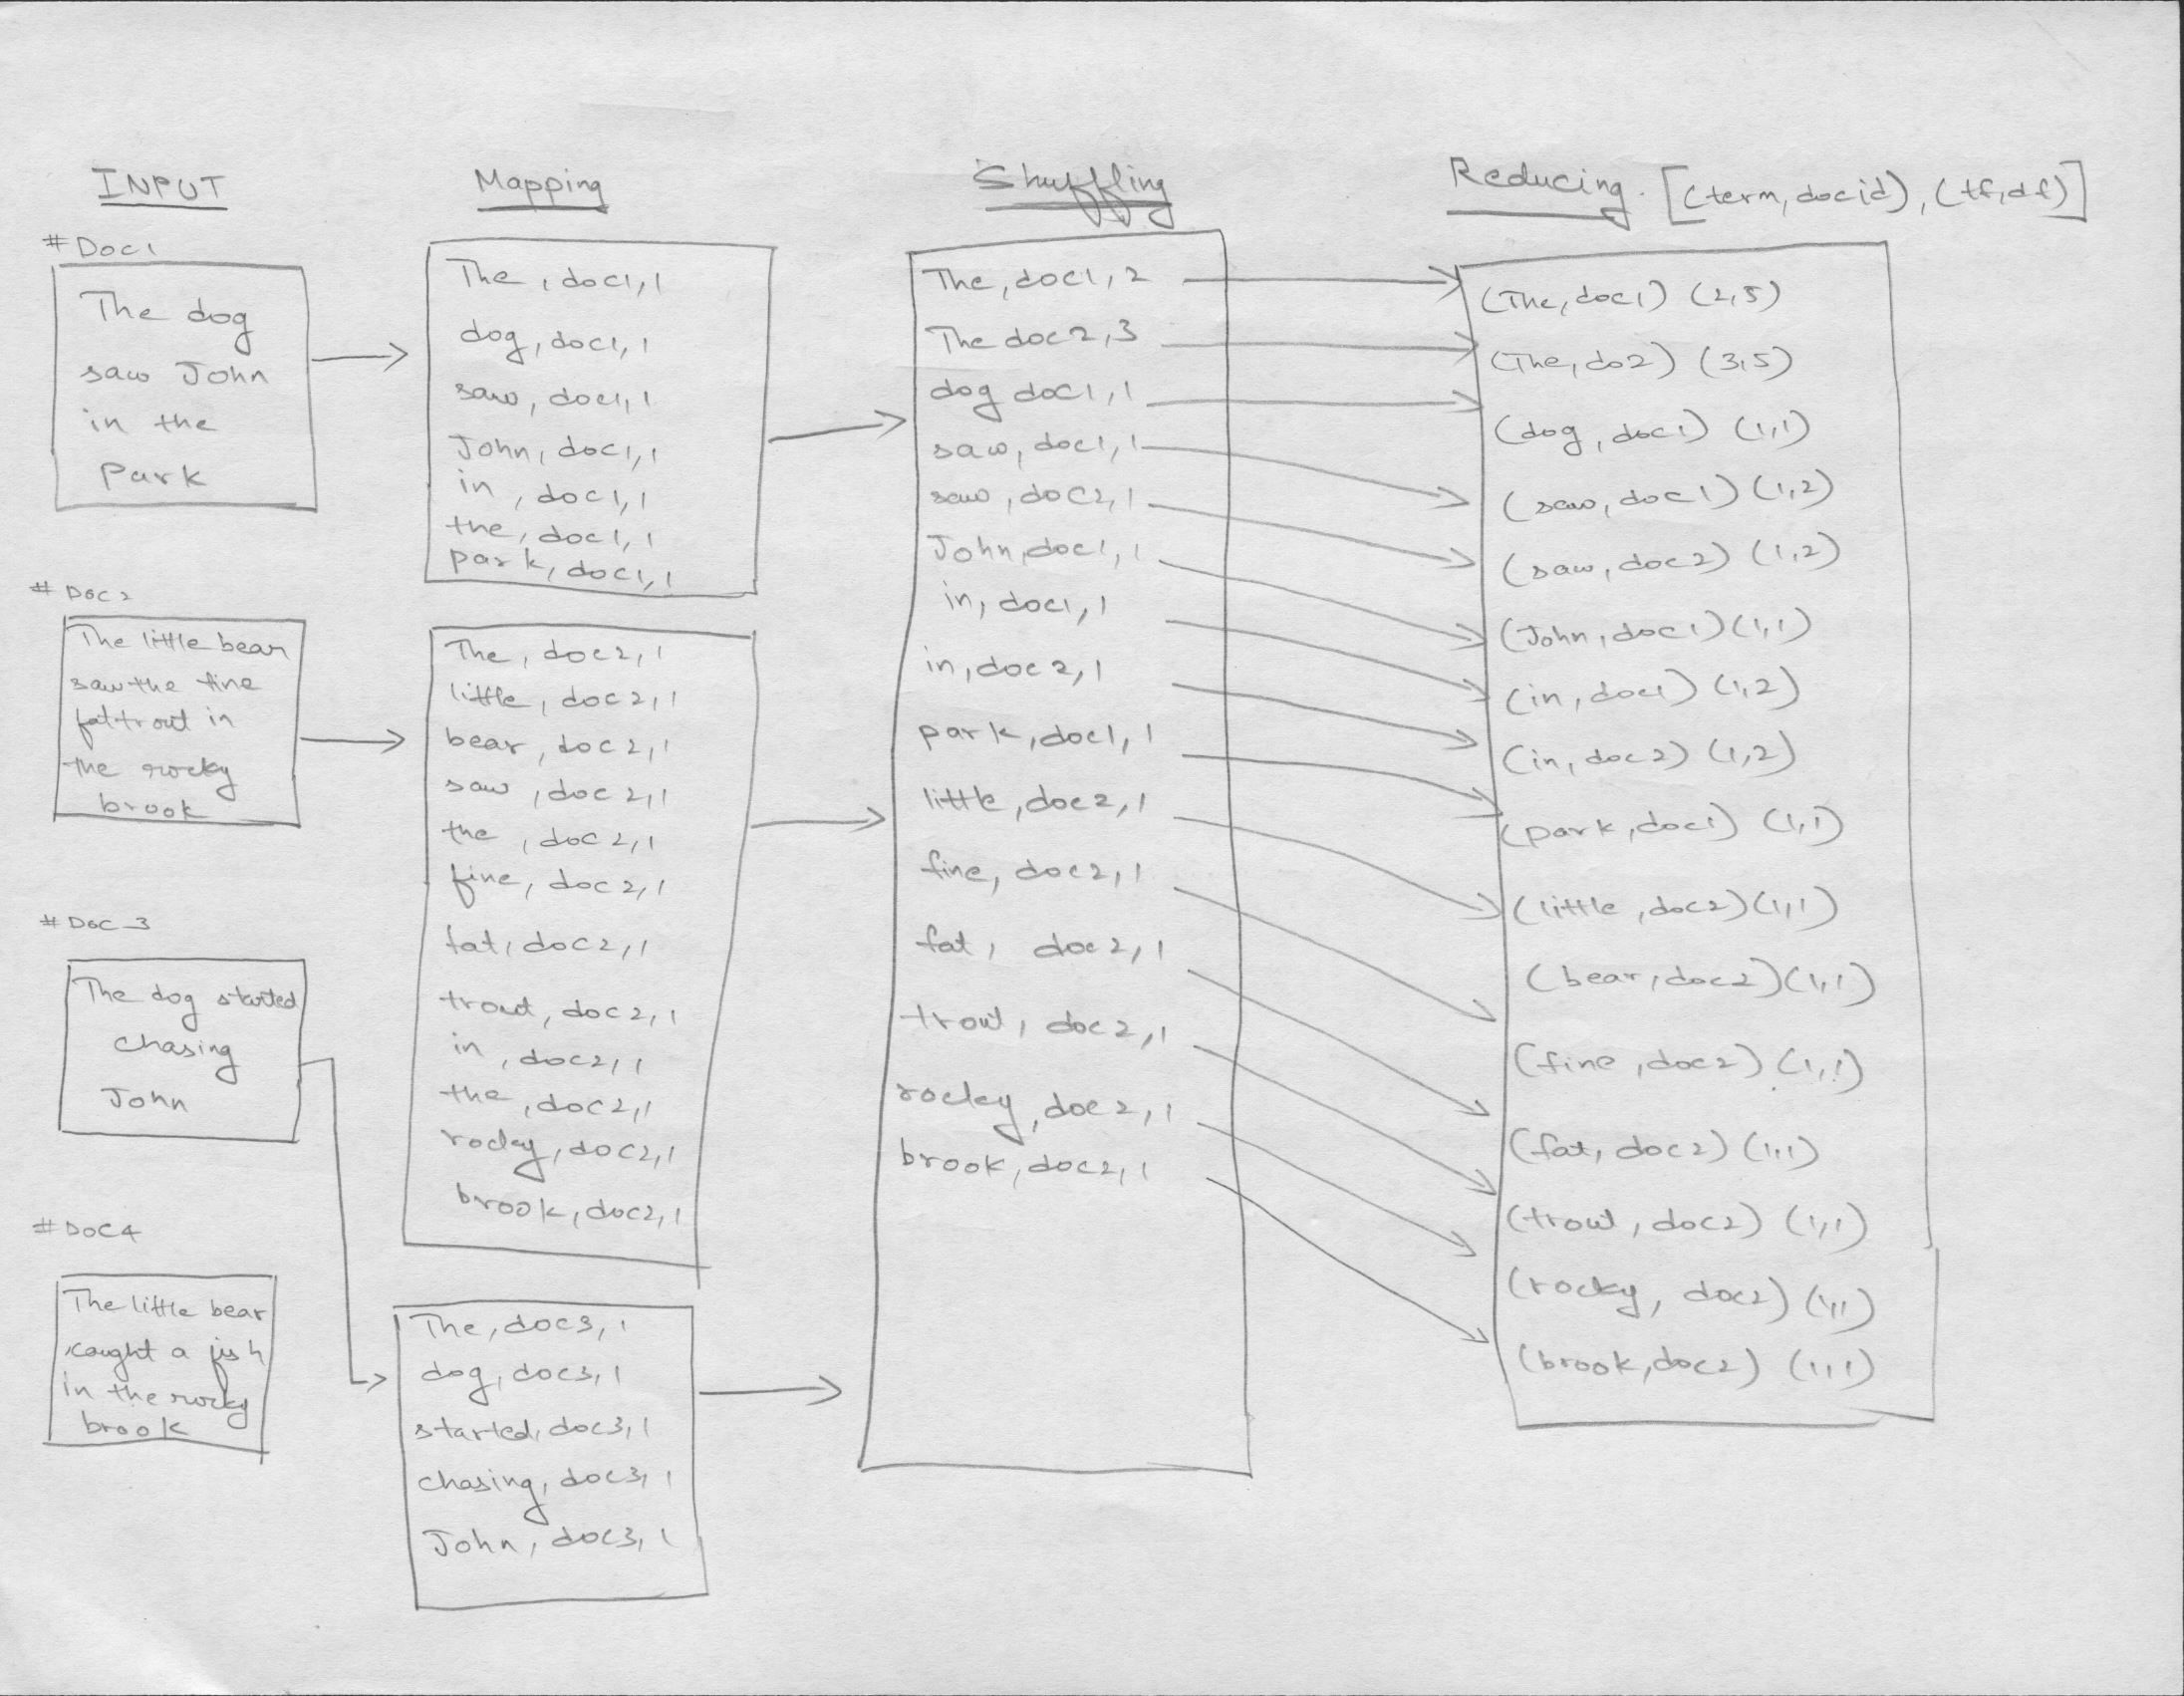 INPUT
#Doc1
The dog
saw John
in the
Park
# Doc2
The little bear
saw the fine
fat trout in
the rocky
brook
# Doc 3
The dog started
chasing
John
#DOC4
The little bear
caught a fish
in the rocky
brook
Mapping
The, doc1, 1
dog, doc1, 1
saw, doc1, 1
John, doc1, 1
in, doc1, 1
the, doc1, 1
park, doc1, 1
The, doc2, 1
little, doc2, 1
bear, doc2, 1
saw, doc2, 1
the, doc2, 1
fine, doc2, 1
fat, doc2, 1
trout, doc2, 1
in, doc2, 1
the, doc2, 1
rocky, doc2, 1
brook, doc2, 1
The, doc3, 1
dog, doc3, 1
started, doc3, 1
chasing, doc3, 1
John, doc3, 1
Shuffling
The, doc1, 2
The doc2, 3
dog doc1, 1
saw, doc1, 1
saw, doc2, 1
John, doc1, 1
in, doc1, 1
in, doc2, 1
park, doc1, 1
little, doc2, 1
fine, doc2, 1
fat, doc2, 1
trout, doc2, 1
rocky, doc2, 1
brook, doc2, 1
Reducing. [(term, docid), (tf, df)]
(The, doc1) (2,5)
(The, do2) (3,5)
(dog, doc1) (1,1)
(saw, doc1) (1,2)
(saw, doc2) (1,2)
(John, doc1) (1,1)
(in, doc1) (1,2)
(in, doc2) (1,2)
(park, doc1) (1,1)
(little, doc2) (1,1)
(bear, doc2) (1,1)
(fine, doc2) (1,1)
(fat, doc2) (1,1)
(trout, doc2) (1,1)
(rocky, doc2) (1,1)
(brook, doc2) (1,1)